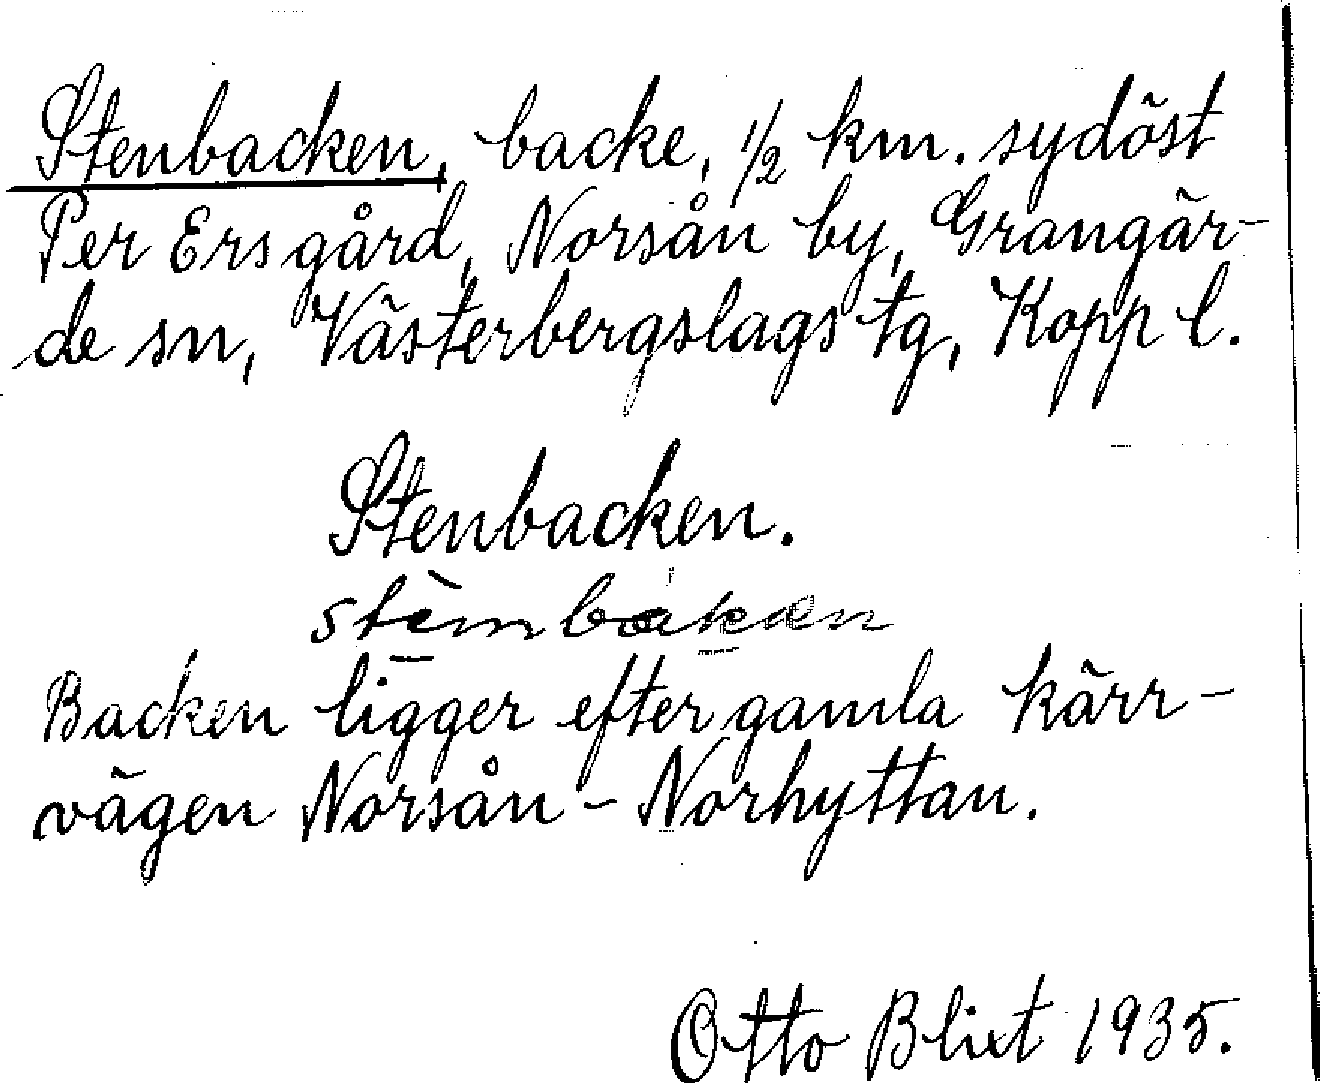 Stenbacken, backe, 1/2 km. sydöst
Per Ers gård, Norsån by, Grangär-
de sn, Västerbergslags tg, Kopp l.
Stenbacken.
stèmbakæn
Backen ligger efter gamla kärr-
vägen Norsån - Norhyttan.
Otto Blixt 1935.